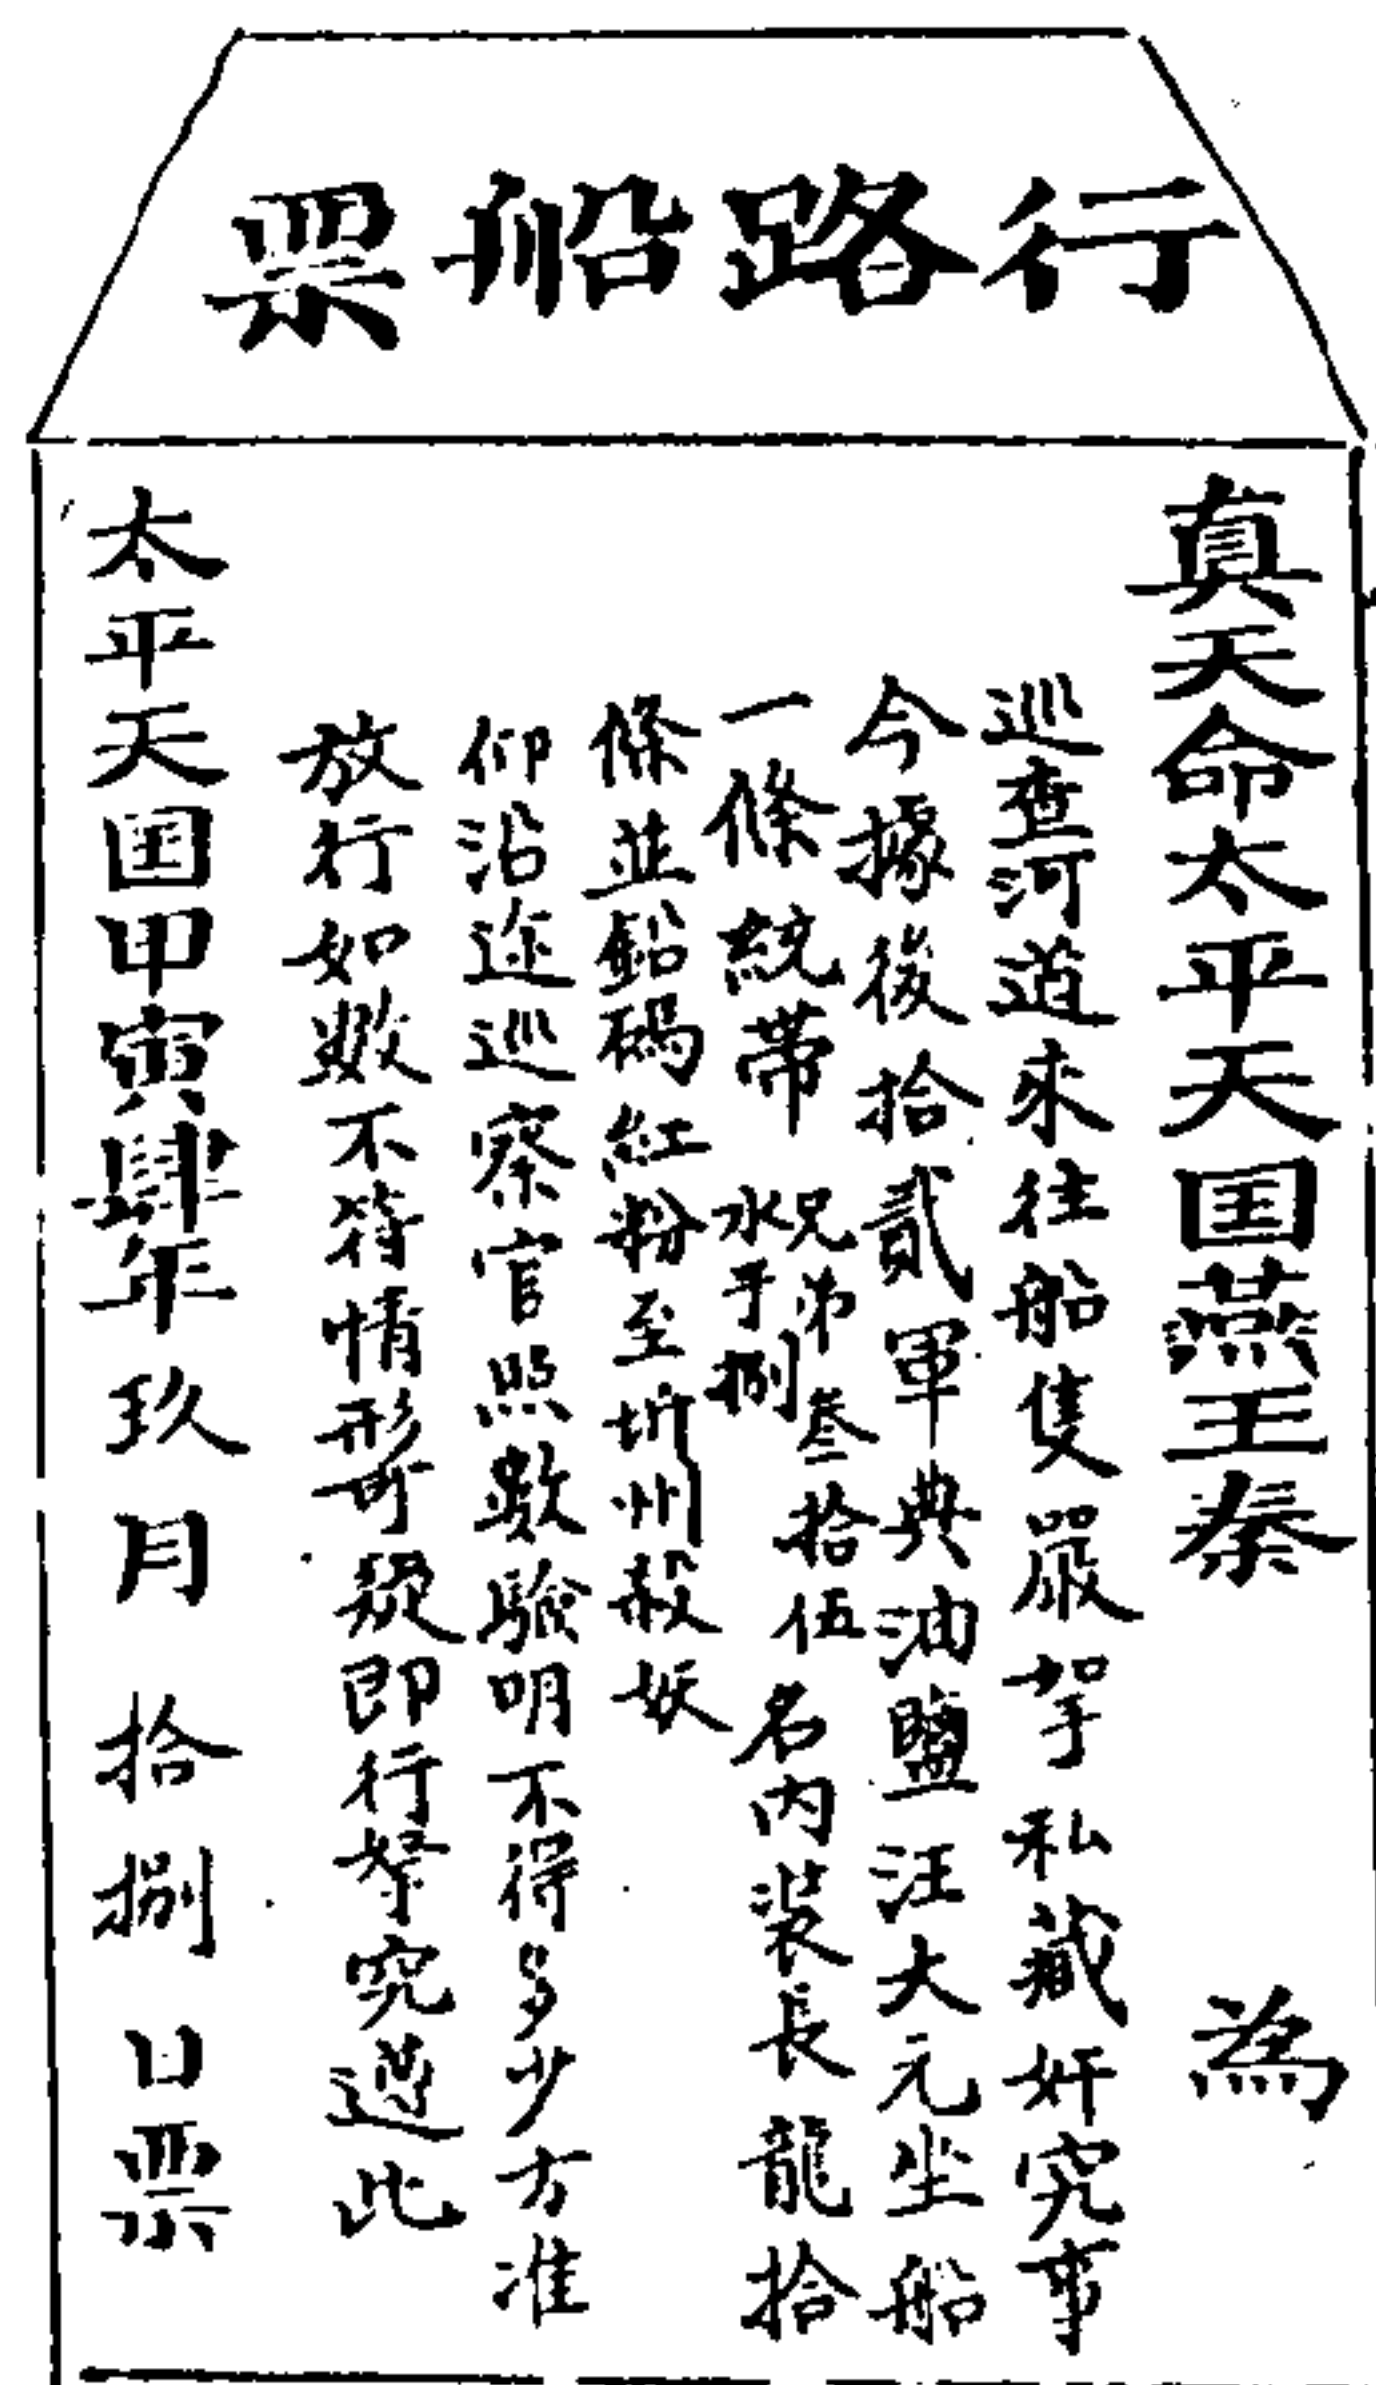 行路船票
真天命太平天囯燕王秦 為
巡查河道來往船隻嚴拏私藏奸究事
今據後拾貳軍典油鹽汪大元坐船
一條統帶兄弟叁拾伍水手捌名內裝長龍拾
條並鉛碼紅粉至圻州殺妖
仰沿途巡察官照數驗明不得多少方准
放行如數不符情形可疑即行拏究遵此
太平天囯甲寅肆年玖月拾捌日票